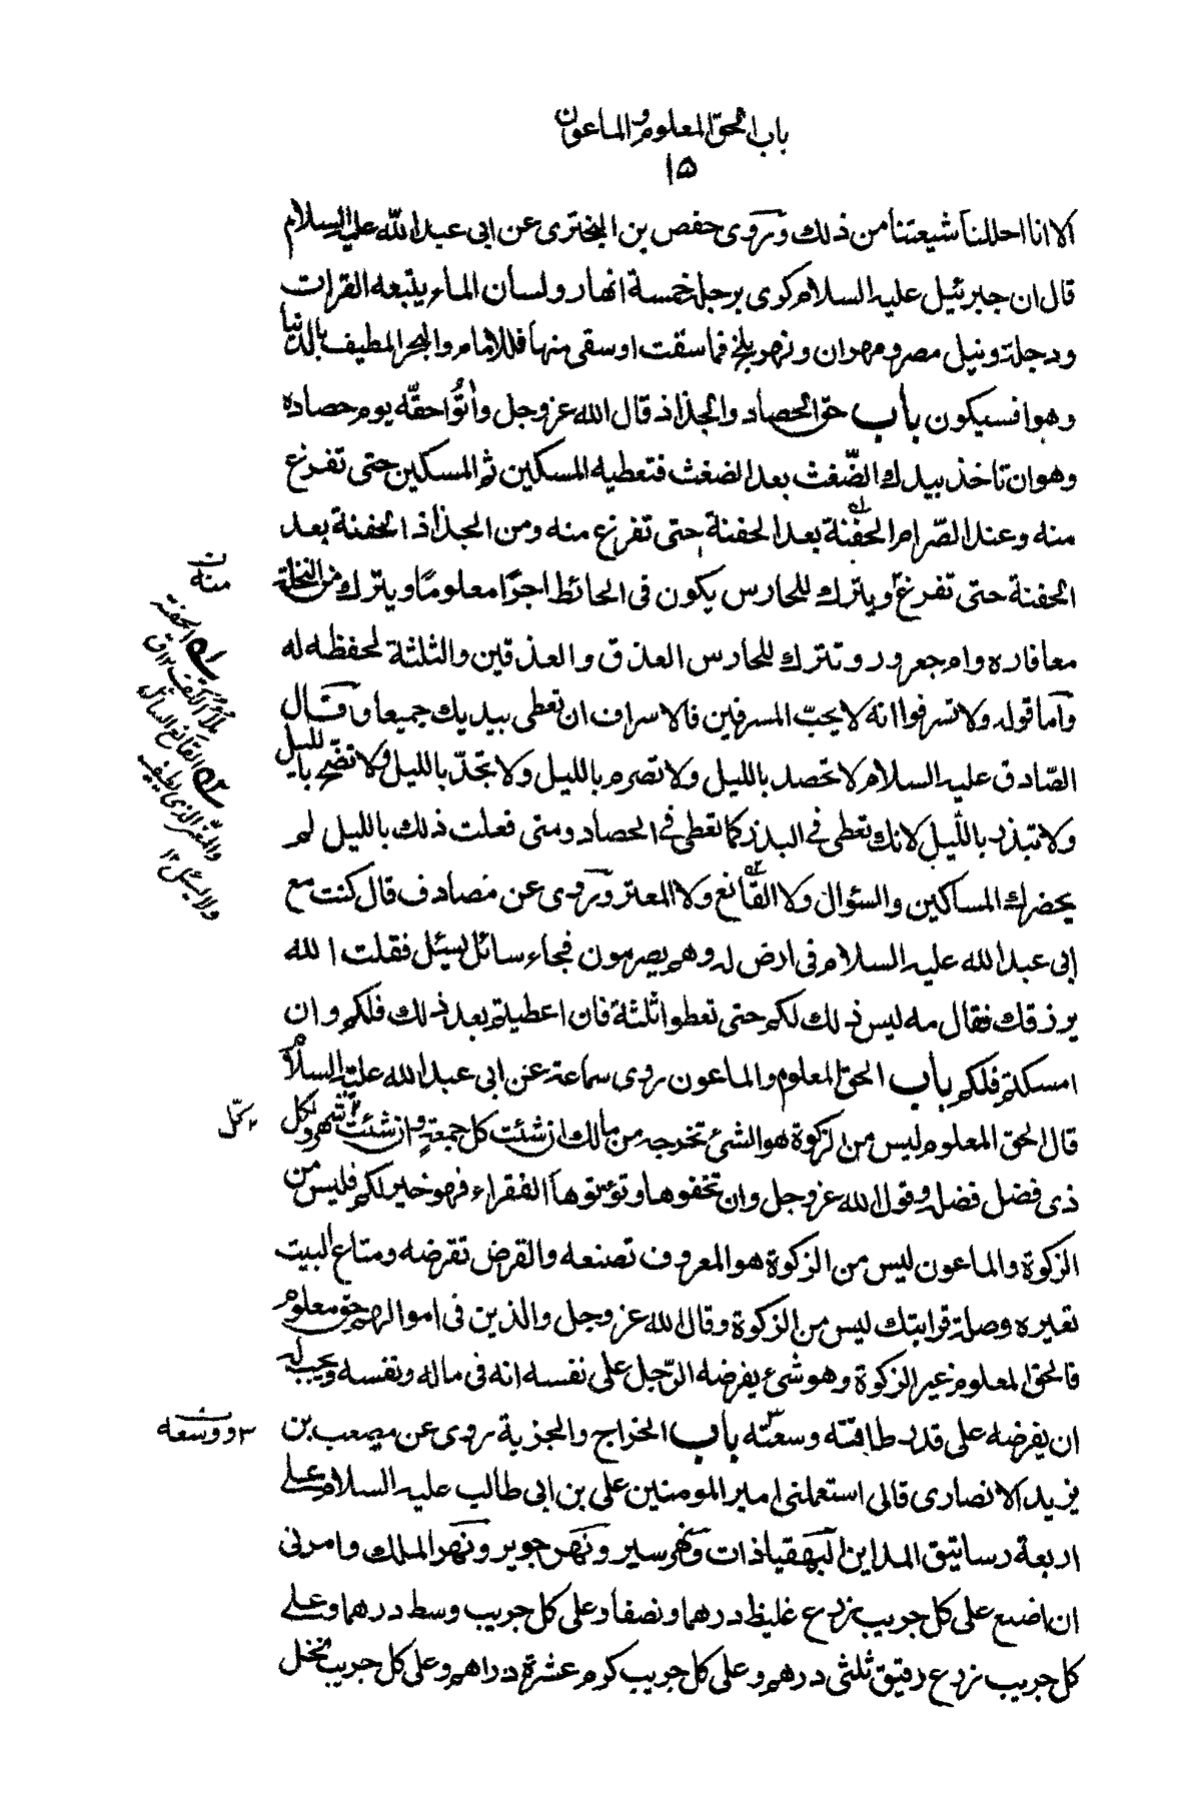 باب الحق المعلوم والماعون
١٥
الا انا احللنا شيعتنا من ذلك وَرَوى حفص بن البختري عن ابى عبد الله عليه السلام
قال ان جبرئيل عليه السلام كرى برجله خمسة انهار ولسان الماء يتبعه الفرات
ودجلة ونيل مصر ومهران ونهر بلخ فما سقت او سقى منها فللامام والبحر المطيف بالدنيا
وهو افسيكون باب حق الحصاد والجذاذ قال الله عز وجل واٰتُوا حقّه يوم حصاده
وهو ان تاخذ بيدك الضّغث بعد الضغث فتعطيه المسكين ثم المسكين حتى تفرغ
منه وعند الصّرام الحفنة بعد الحفنة حتى تفرغ منه ومن الجذاذ الحفنة بعد
الحفنة حتى تفرغ ويترك للحارس يكون فى الحائط اجرًا معلومًا ويترك من النخلة
معافاره وام جعرور وتترك للحارس العذق والعذقين والثلثة لحفظه له
وَاما قوله ولا تسرفوا انه لا يحبّ المسرفين فالاسراف ان تعطى بيديك جميعا وَقال
الصّادق عليه السلام لا تحصد بالليل ولا تصرم بالليل ولا تجذّ بالليل ولا تضحّ بالليل
ولا تبذر بالليل لانك تعطى فى البذر كما تعطى فى الحصاد ومتى فعلت ذلك بالليل لم
يحضرك المساكين والسؤال ولا القانع ولا المعتر وَرَوى عن مصادف قال كنت مع
ابى عبد الله عليه السلام فى ارض له وهم يصرمون فجاء سائل يسئل فقلت الله
يرزقك فقال مه ليس ذلك لكم حتى تعطوا ثلثةً فان اعطيتم بعد ذلك فلكم وان
امسكتم فلكم باب الحق المعلوم والماعون روى سماعة عن ابى عبد الله عليه السلام
قال الحق المعلوم ليس من الزكوة هو الشئ تخرجه من مالك ان شئت كل جمعة وان شئت شهر ولكل
ذى فضل فضله وقول الله عز وجل وان تخفوها وتؤتوها الفقراء فهو خير لكم فليس من
الزكوة والماعون ليس من الزكوة هو المعروف تصنعه والقرض تقرضه ومتاع البيت
تعيره وصلة قرابتك ليس من الزكوة وقال الله عز وجل والذين فى اموالهم حق معلوم
فالحق المعلوم غير الزكوة وهو شئ يفرضه الرّجل على نفسه انه فى ماله ونفسه ويجب له
ان يفرضه على قدر طاقته وسعته باب الخراج والجزية روى عن مصعب بن
يزيد الانصارى قال استعملنى امير المومنين على بن ابى طالب عليه السلام على
اربعة رساتيق المداين البهقياذات وَنهر سير وَنهر جوير وَنهر الملك وامرنى
ان اضع على كل جريب زرع غليظ درهما ونصفا وعلى كل جريب وسط درهما وعلى
كل جريب زرع رقيق ثلثى درهم وعلى كل جريب كرم عشرة دراهم وعلى كل جريب نخل
منه ن
الحفنة
ملأ الكف ١٢ ق
القانع السائل
والمعتر الذى يطيف
ولا يسئل ١٢
٢ كلّ
٣ ووسعه